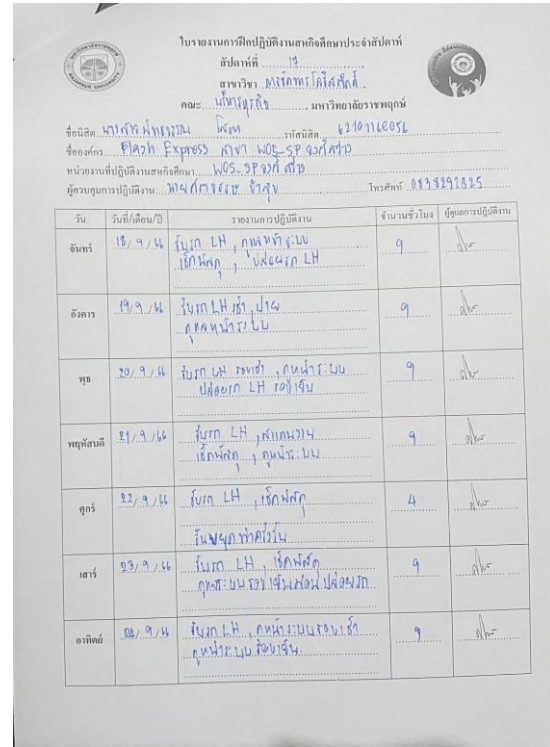 ใบรายงานการฝึกปฏิบัติงานสหกิจศึกษาประจำสัปดาห์
สัปดาห์ที่ 13
สาขาวิชา การจัดการโลจิสติกส์
คณะ บริหารธุรกิจ มหาวิทยาลัยราชพฤกษ์
ชื่อนิสิต นางสาว รหัสนิสิต
ชื่อองค์กร Flash Express สาขา WOS_SP
หน่วยงานที่ปฏิบัติงานสหกิจศึกษา WOS_SP
ผู้ควบคุมการปฏิบัติงาน นาย โทรศัพท์ 0838292825
วัน วันที่/เดือน/ปี รายงานการปฏิบัติงาน จำนวนชั่วโมง ผู้ดูแลการปฏิบัติงาน
จันทร์ 18/9/66 รับรถ LH , ดูแลหน้าระบบ 9
เช็คพัสดุ , ปล่อยรถ LH
อังคาร 19/9/66 รับรถ LH เช้า , บ่าย 9
ดูแลหน้าระบบ
พุธ 20/9/66 รับรถ LH รอบเช้า , ดูหน้าระบบ 9
ปล่อยรถ LH รอบเย็น
พฤหัสบดี 21/9/66 รับรถ LH , สแกนงาน 9
เช็คพัสดุ , ดูหน้าระบบ
ศุกร์ 22/9/66 รับรถ LH , เช็คพัสดุ 4
วันหยุด ทำครึ่งวัน
เสาร์ 23/9/66 รับรถ LH , เช็คพัสดุ 9
ดูหน้าระบบรอบเย็นก่อนปล่อยรถ
อาทิตย์ 24/9/66 รับรถ LH , ดูหน้าระบบรอบเช้า 9
ดูหน้าระบบรอบเย็น